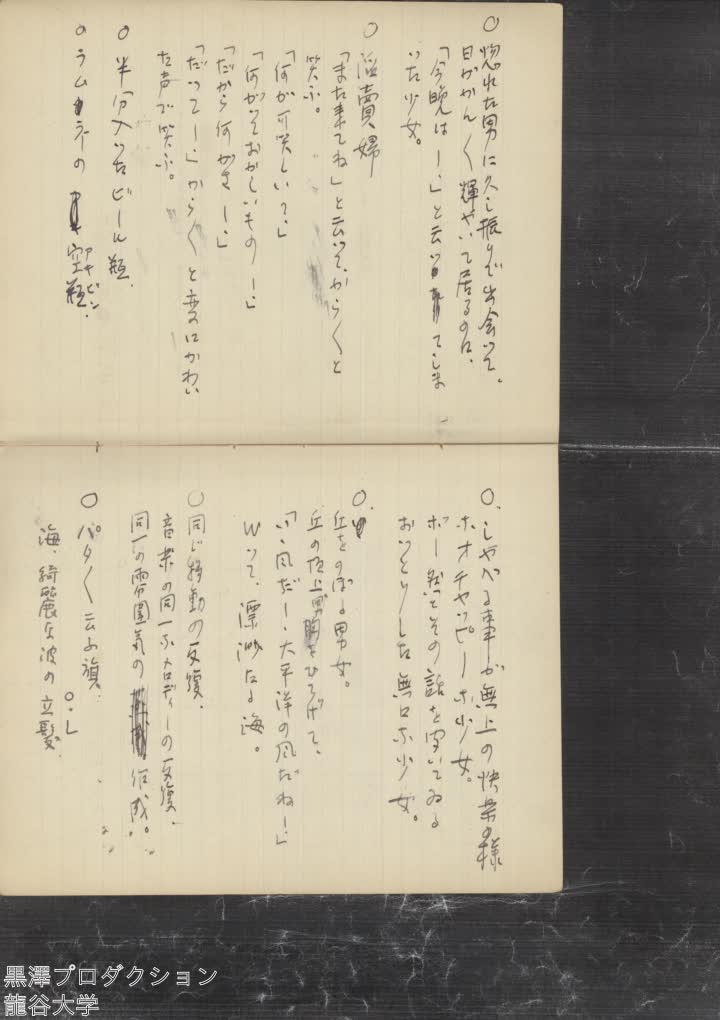 ○ 惚れた男に久し振りで出会つて、
目がかん〱輝やいて居るのに、
「今晩は—。」と云つてしま
いた少女。
○ 淫賣婦
「また来てね」と云つて、からくと
笑ふ。
「何が可笑しいて。」
「何がつておかしいもの—。」
「だから何がさ—。」
「だつて—。」からくと変にかわい
た声で笑ふ。
○ 半分入つたビール瓶、
○ ラムネの空瓶、
アキビン
○、しやべる事が無上の快楽の様
ホオチャッピーな少女。
ボー然とその話を聞いてゐる
おつとりした無口な少女。
○、
丘をのぼる男女。
丘の頂上、男、胸をひろげて、
「いゝ風だ—、太平洋の風だね—」
Wつて、漂渺たる海。
○ 同じ移動の反復、
音楽の同一なメロディーの反復、
同一の雰囲気の作成。
○ パタ〱云ふ旗、
海、綺麗な波の立髪、
○・L
黒澤プロダクション
龍谷大学